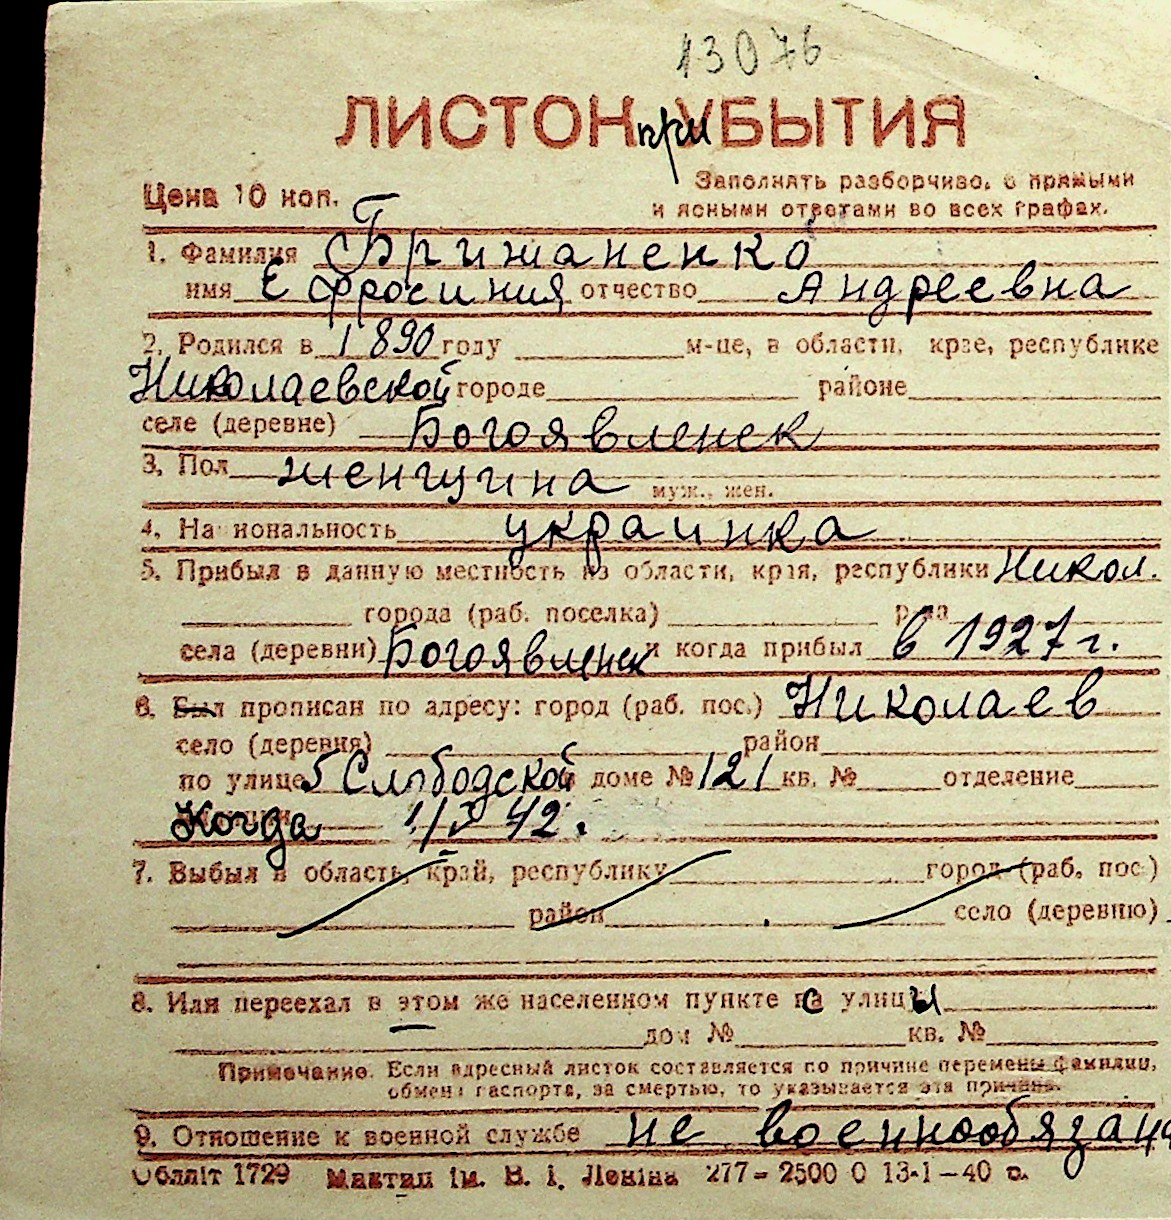 13076
ЛИСТОК приУБЫТИЯ
Цена 10 коп.
Заполнять разборчиво, с прямыми
и ясными ответами во всех графах.
1. Фамилия Грижаненко
имя Ефросиния отчество Андреевна
2. Родился в 1890 году м-це, в области, крае, республике
Николаевской городе районе
селе (деревне) Богоявленск
3. Пол женщина муж., жен.
4. Национальность украинка
5. Прибыл в данную местность из области, края, республики Никол.
города (раб. поселка) р-на
села (деревни) Богоявленск и когда прибыл в 1927 г.
6. Был прописан по адресу: город (раб. пос.) Николаев
село (деревня) район
по улице 5 Слободской в доме № 121 кв. № отделение
Когда 1/V 42.
7. Выбыл в область, край, республику город (раб. пос.)
район село (деревню)
8. Или переехал в этом же населенном пункте с улицы
дом № кв. №
Примечание. Если адресный листок составляется по причине перемены фамилии,
обмена паспорта, за смертью, то указывается эта причина.
9. Отношение к военной службе не военнообязан
Обллiт 1729 iм. В. I. Ленiна 277 – 2500 0 13-1-40 р.